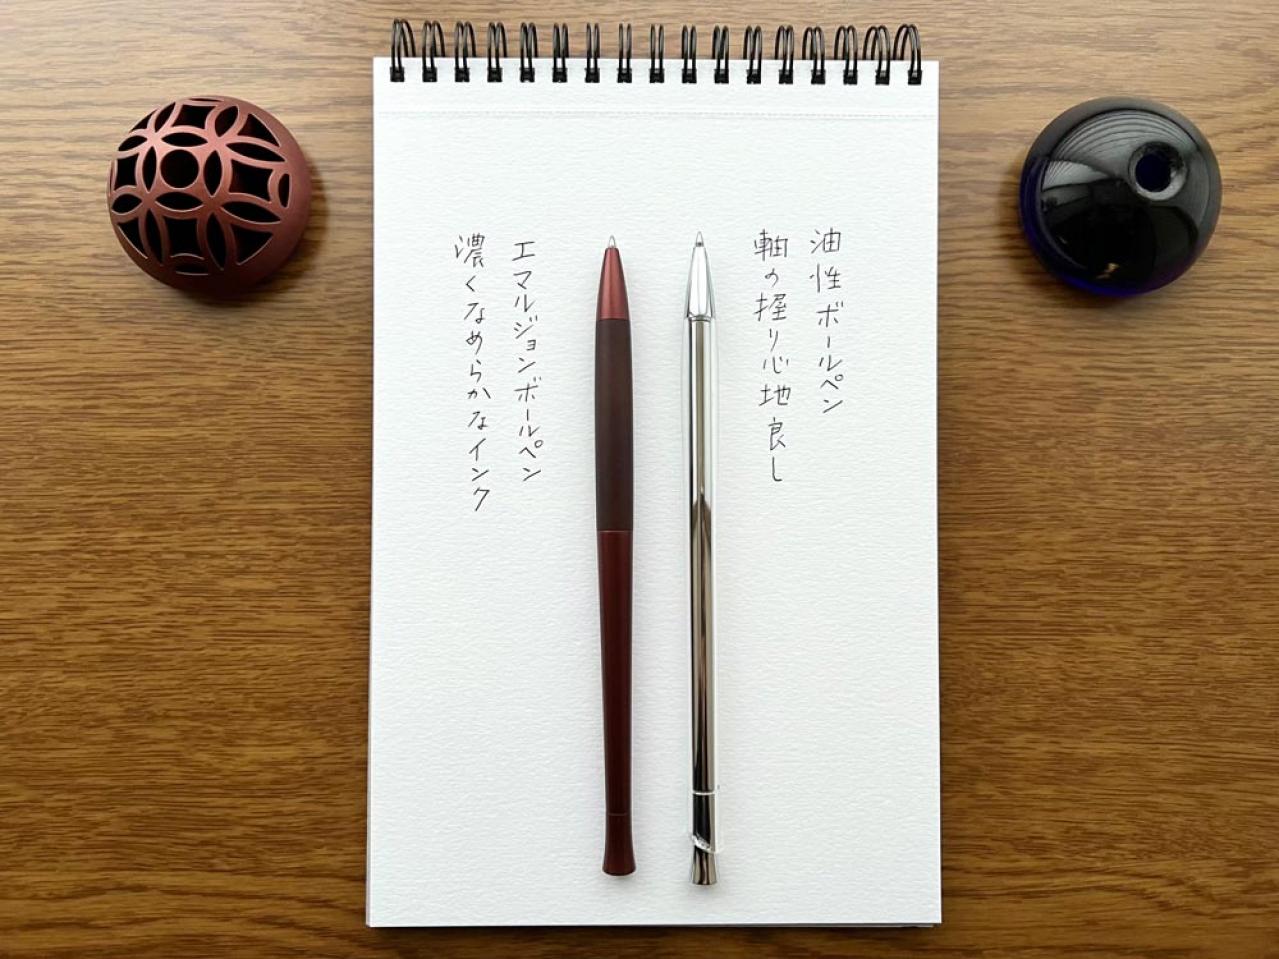 油性ボールペン
軸の握り心地良し
エマルジョンボールペン
濃くなめらかなインク